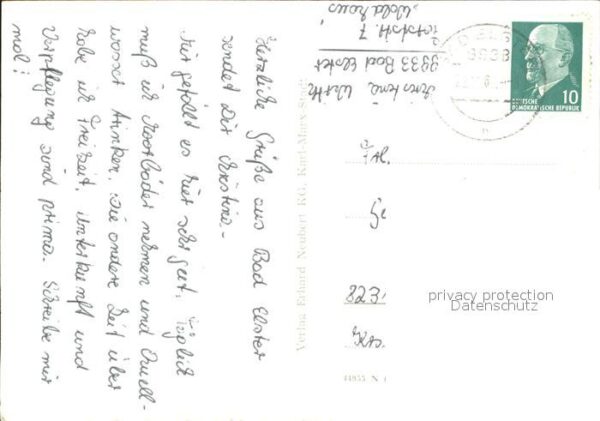 Herzliche Grüße aus Bad Elster
sendet Dir Christine.-
Mir gefällt es hier sehr gut, täglich
muß ich Moorbäder nehmen und Quell-
wasser trinken. Die andere Zeit über
habe ich Freizeit. Unterkunft und
Verpflegung sind prima. Schreibe mir
mal!
Christine
9933 Bad Elster
7
"Waldhaus"
9933
DEUTSCHE
DEMOKRATISCHE REPUBLIK
10
Verlag Erhard Neubert KG, Karl-Marx-Stadt
Frl.
Ge
823
privacy protection
Datenschutz